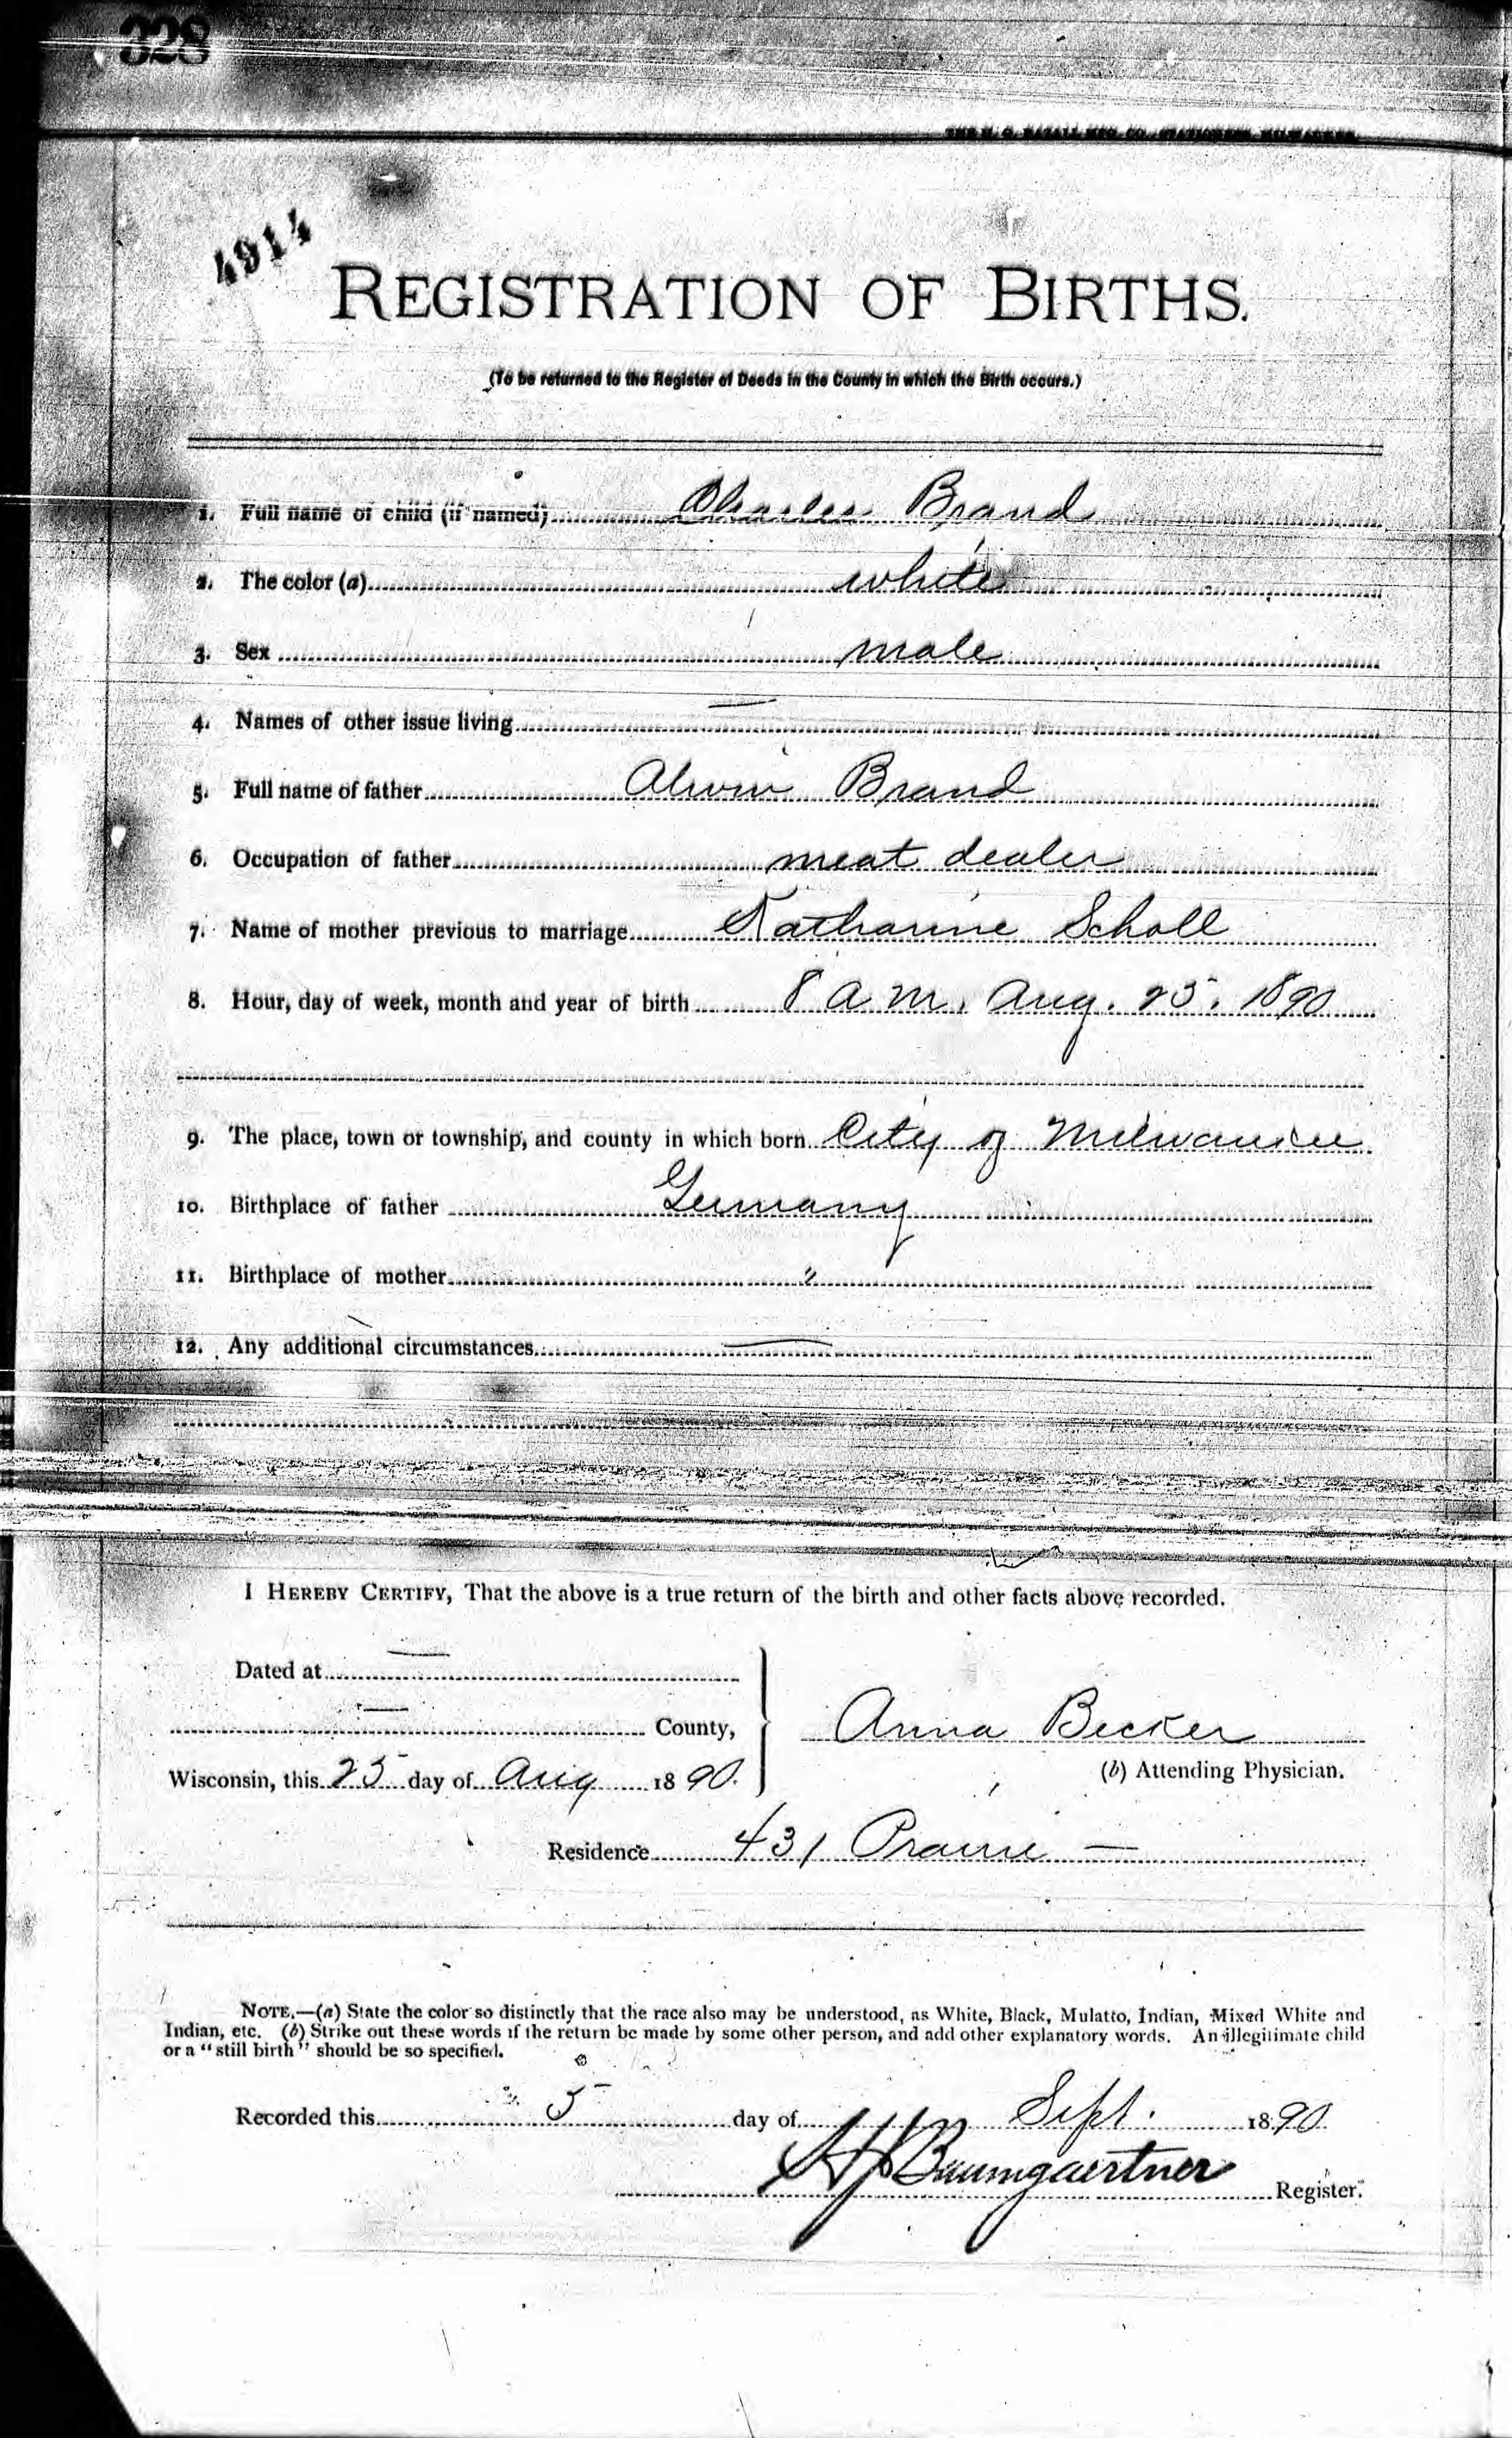 328
THE H. G. RAZALL MFG CO. STATIONERS MILWAUKEE
4914
REGISTRATION OF BIRTHS.
(To be returned to the Register of Deeds in the County in which the Birth occurs.)
1. Full name of child (if named) Charles Brand
2. The color (a) white
3. Sex male
4. Names of other issue living —
5. Full name of father Alwin Brand
6. Occupation of father meat dealer
7. Name of mother previous to marriage Katharine Scholl
8. Hour, day of week, month and year of birth 8 a.m. Aug. 25. 1890
9. The place, town or township, and county in which born City of Milwaukee
10. Birthplace of father Germany
11. Birthplace of mother "
12. Any additional circumstances —
I HEREBY CERTIFY, That the above is a true return of the birth and other facts above recorded.
Dated at —
— County,
Anna Becker
Wisconsin, this 25 day of Aug 1890.
(b) Attending Physician.
Residence 431 Prairie —
NOTE.—(a) State the color so distinctly that the race also may be understood, as White, Black, Mulatto, Indian, Mixed White and
Indian, etc. (b) Strike out these words if the return be made by some other person, and add other explanatory words. An illegitimate child
or a "still birth" should be so specified.
Recorded this 5 day of Sept. 1890
Baumgaertner Register.